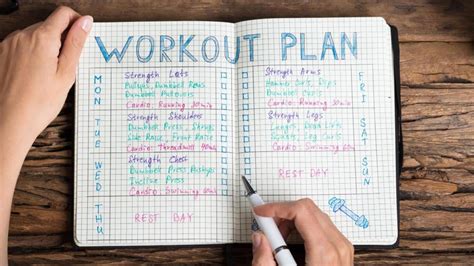 WORKOUT PLAN
MON
Strength Lats
Pullups, Dumbbell Rows
Dumbbell Pullovers
Cardio: Running
TUE
Strength Shoulders
Dumbbell Press, Shrugs
Side Raise, Front Raise
Cardio:
WED
Strength Chest
Dumbbell Press, Pushups
Incline Press
Cardio: Swimming
THU
REST DAY
FRI
Strength Arms
Curls, Dips
Dumbbell Curls
Cardio: Running
SAT
Strength Legs
Leg Curls
Cardio: Swimming
SUN
REST DAY